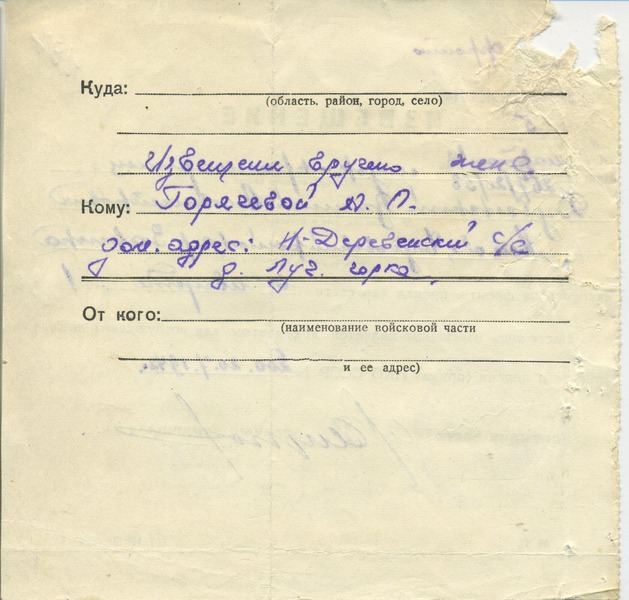 Куда:
(область, район, город, село)
Извещение вручено жене
Кому: Горячевой А. П.
дом. адрес: Н-Деревенский с/с
д. Луг. горка
От кого:
(наименование войсковой части
и ее адрес)